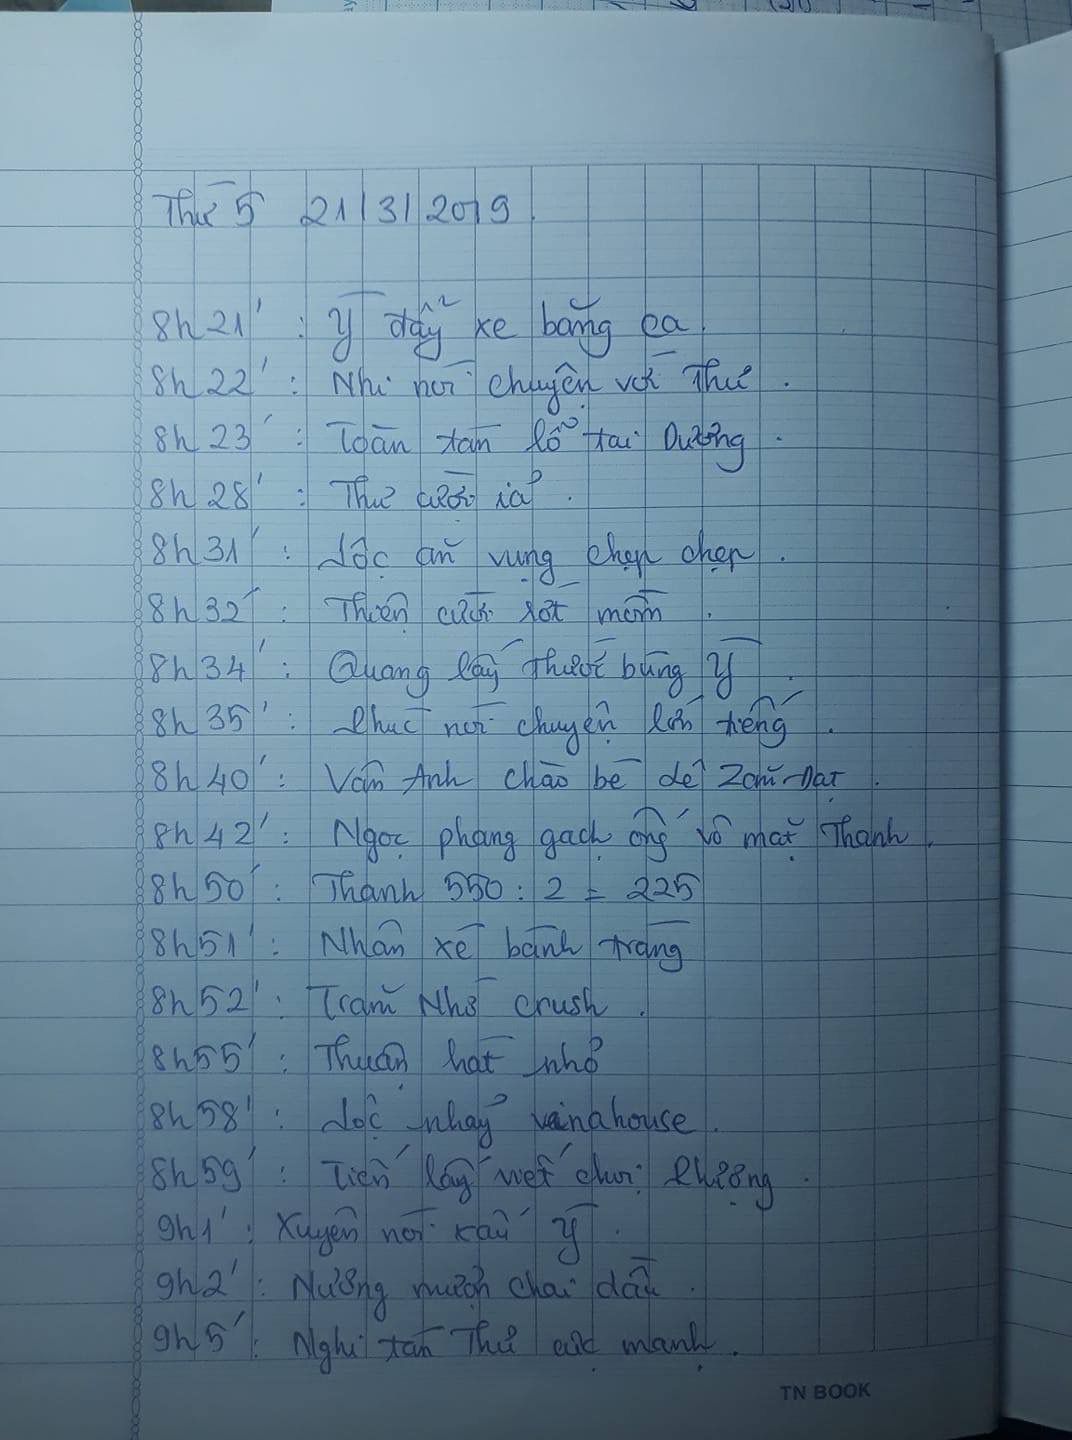 Thứ 5 21/3/2019
8h21' : Ý đẩy xe bằng ca.
8h22' : Nhi nói chuyện với Thư.
8h23' : Toàn tán lỗ tai Dương.
8h28' : Thư cười ỉa.
8h31' : Lộc ăn vụng chẹp chẹp.
8h32' : Thiện cười rớt mồm.
8h34' : Quang lấy thước búng Ý.
8h35' : Phúc nói chuyện lớn tiếng.
8h40' : Vân Anh chào bé dế Zom-Dat.
8h42' : Ngọc phang gạch ống vô mặt Thanh.
8h50' : Thanh 550 : 2 = 225
8h51' : Nhân xé bánh tráng
8h52' : Trâm Nhớ crush.
8h55' : Thuận hát nhỏ
8h58' : Lộc nhảy vinahouse.
8h59' : Tiến lấy viết chọi Phượng.
9h1' : Xuyên nói xấu Ý.
9h2' : Nương mượn chai dầu.
9h5' : Nghi tán Thư cực mạnh.
TN BOOK